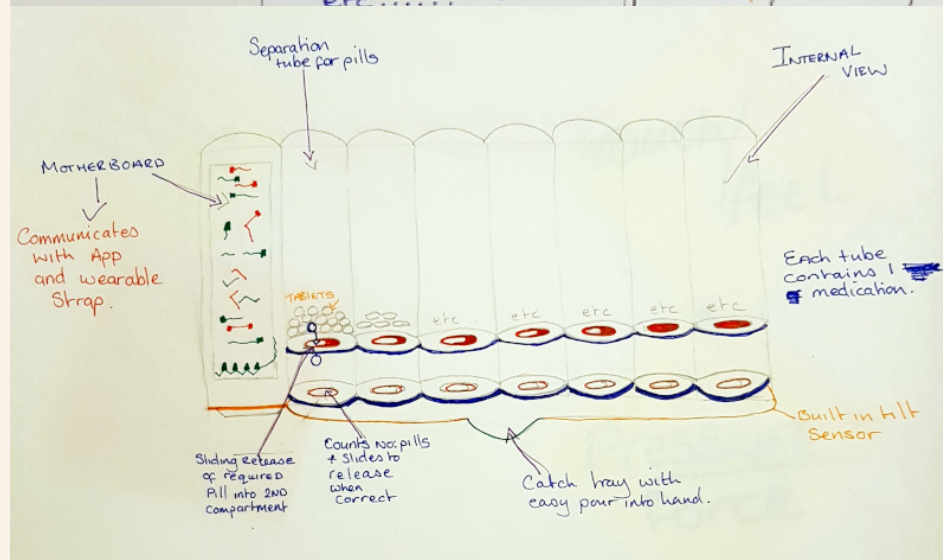 etc......
Separation
tube for pills
INTERNAL
VIEW
MOTHERBOARD
Communicates
with App
and wearable
Strap.
Each tube
contains 1
medication.
TABLETS
etc
etc
etc
etc
etc
Built in tilt
Sensor
Sliding release
of required
Pill into 2ND
compartment
Counts No: pills
+ Slides to
release
when
correct
Catch tray with
easy pour into hand.